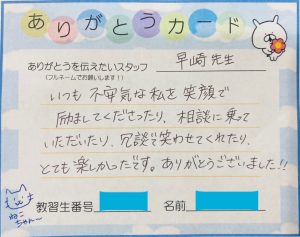 ありがとうカード
ありがとうを伝えたいスタッフ
(フルネームでお願いします!)
早崎 先生
いつも 不安気な私を 笑顔で
励ましてくださったり、相談に乗って
いただいたり、冗談で笑わせてくれたり、
とても 楽しかったです。ありがとうございました!!
教習生番号
名前
ねこ
ちゃんー